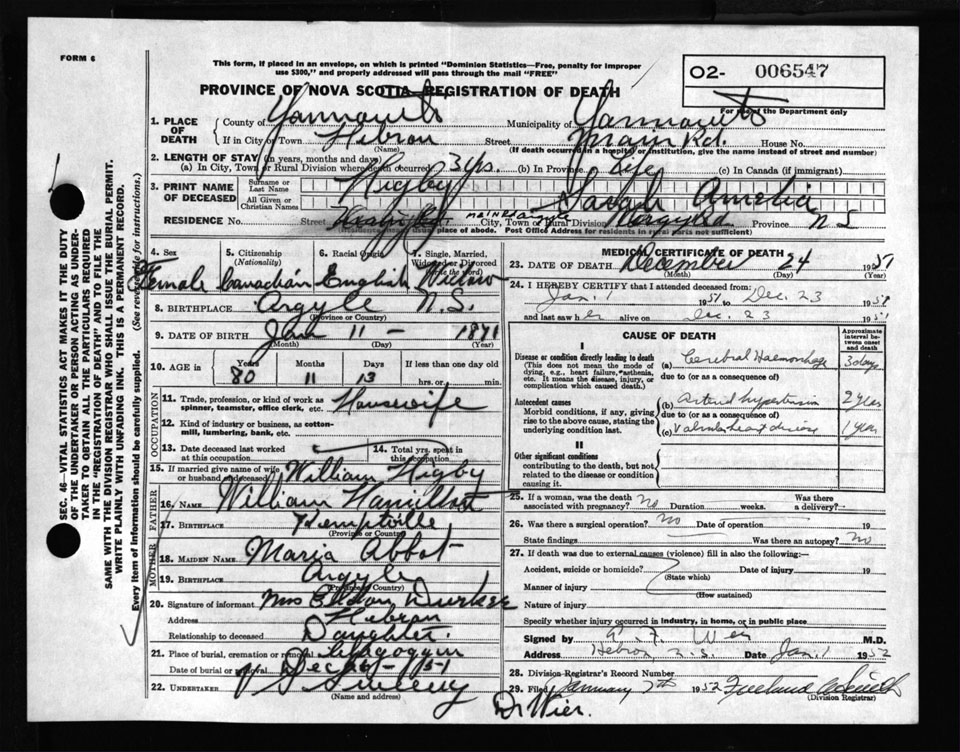 FORM 6
This form, if placed in an envelope, on which is printed "Dominion Statistics—Free, penalty for improper
use $300," and properly addressed will pass through the mail "FREE"
O2- 006547
PROVINCE OF NOVA SCOTIA—REGISTRATION OF DEATH
For use of the Department only
1. PLACE OF DEATH
County of Yarmouth Municipality of Yarmouth
If in City or Town Hebron Street Main Rd. House No.
(Name) (If death occurred in a hospital or institution, give the name instead of street and number)
2. LENGTH OF STAY (in years, months and days)
(a) In City, Town or Rural Division where death occurred 3 yrs. (b) In Province Life (c) In Canada (if immigrant)
3. PRINT NAME OF DECEASED
Surname or Last Name Higby
All Given or Christian Names Sarah Amelia
RESIDENCE No. Street City, Town or Rural Division Argyle Province N S
usual place of abode. Post Office Address for residents in rural parts not sufficient)
4. Sex Female
5. Citizenship (Nationality) Canadian
6. Racial Origin English
7. Single, Married, Widowed or Divorced (Write the word) Widow
8. BIRTHPLACE Argyle N.S.
(Province or Country)
9. DATE OF BIRTH Jan 11 - 1871
(Month) (Day) (Year)
10. AGE in Years Months Days If less than one day old
80 11 13 hrs. or min.
OCCUPATION
11. Trade, profession, or kind of work as
spinner, teamster, office clerk, etc. Housewife
12. Kind of industry or business, as cotton-
mill, lumbering, bank, etc.
13. Date deceased last worked at this occupation
14. Total yrs. spent in this occupation
15. If married give name of wife or husband of deceased William Higby
FATHER
16. NAME William Hamilton
17. BIRTHPLACE Kemptville
(Province or Country)
MOTHER
18. MAIDEN NAME Maria Abbot
19. BIRTHPLACE Argyle
(Province or Country)
20. Signature of informant Mrs Eldon Durkee
Address Hebron
Relationship to deceased Daughter.
21. Place of burial, cremation or removal
Date of burial or removal Dec
22. UNDERTAKER Sweeny
(Name and address)
MEDICAL CERTIFICATE OF DEATH
23. DATE OF DEATH December 24 1951
(Month) (Day)
24. I HEREBY CERTIFY that I attended deceased from:
Jan. 1 1951 to Dec. 23 1951
and last saw her alive on Dec. 23 1951
CAUSE OF DEATH
Approximate interval between onset and death
I
Disease or condition directly leading to death
(This does not mean the mode of
dying, e.g., heart failure, asthenia,
etc. It means the disease, injury, or
complication which caused death.)
(a) Cerebral Haemorrhage 3 days
due to (or as a consequence of)
Antecedent causes
Morbid conditions, if any, giving
rise to the above cause, stating the
underlying condition last.
(b) Arterial hypertension 2 years
due to (or as a consequence of)
(c) Valvular heart disease 1 year
II
Other significant conditions
contributing to the death, but not
related to the disease or condition
causing it.
25. If a woman, was the death associated with pregnancy? No Duration weeks. Was there a delivery?
26. Was there a surgical operation? No Date of operation 19
State findings Was there an autopsy? No
27. If death was due to external causes (violence) fill in also the following:—
Accident, suicide or homicide? Date of injury 19
(State which)
Manner of injury
(How sustained)
Nature of injury
Specify whether injury occurred in industry, in home, or in public place
Signed by M.D.
Address Hebron N.S. Date Jan. 1 1952
28. Division Registrar's Record Number
29. Filed January 7th 1952
(Division Registrar)
Dr Wier.
SEC. 46—VITAL STATISTICS ACT MAKES IT THE DUTY
OF THE UNDERTAKER OR PERSON ACTING AS UNDER-
TAKER TO OBTAIN ALL THE PARTICULARS REQUIRED
IN THE "REGISTRATION OF DEATH" AND TO FILE THE
SAME WITH THE DIVISION REGISTRAR WHO SHALL ISSUE THE BURIAL PERMIT.
WRITE PLAINLY WITH UNFADING INK. THIS IS A PERMANENT RECORD.
Every item of information should be carefully supplied. (See reverse side for instructions.)